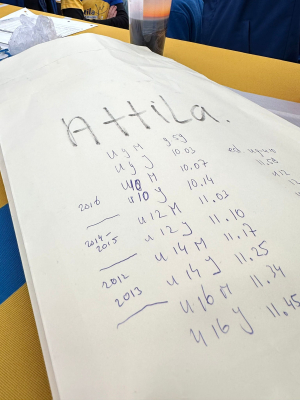 Attila.
u 9 M 9.59
u 9 J 10.03
u 10 M 10.07
2016 u 10 J 10.14
u 12 M 11.03
2014-2015 u 12 J 11.10
u 14 M 11.17
2012 u 14 J 11.25
2013 u 16 M 11.34
u 16 J 11.45